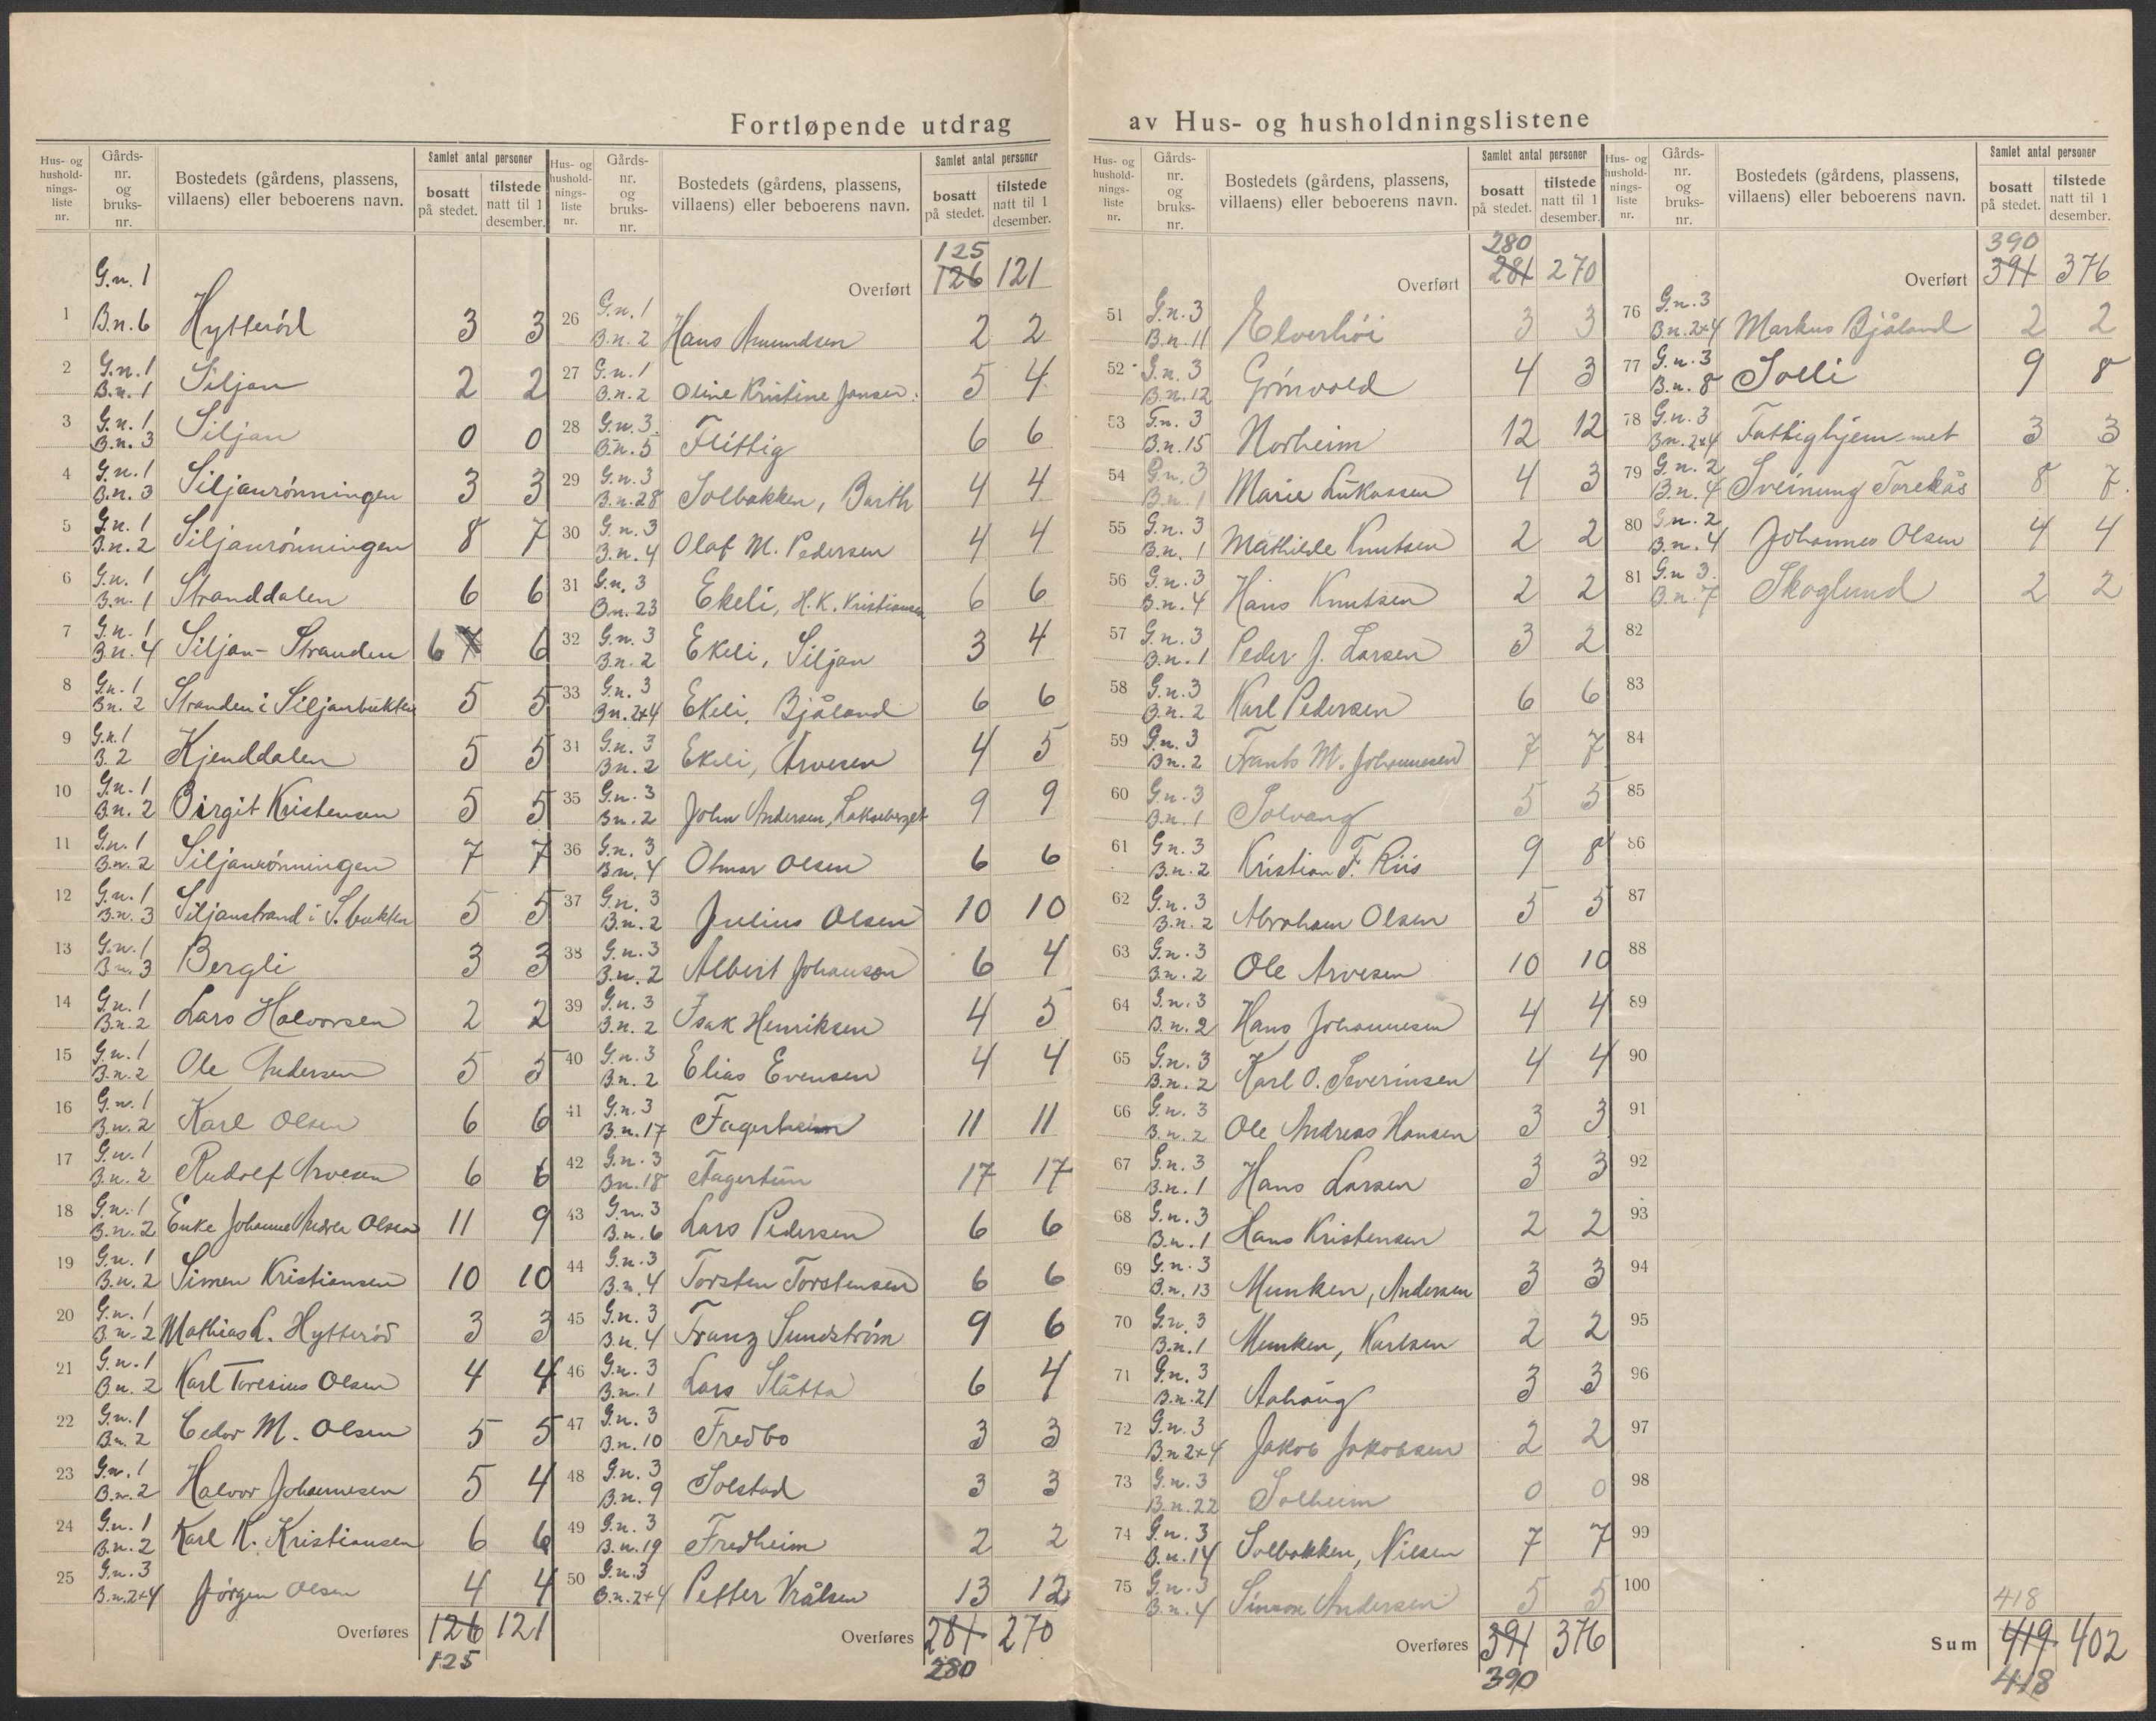 Fortløpende utdrag av Hus- og husholdningslistene
Hus- og husholdnings-liste nr. | Gårds-nr. og bruks-nr. | Bostedets (gårdens, plassens, villaens) eller beboerens navn. | Samlet antal personer | bosatt på stedet. | tilstede natt til 1 desember.
1 G.n. 1 B.n. 6 Hytterød 3 3
2 G.n. 1 B.n. 1 Siljan 2 2
3 G.n. 1 B.n. 3 Siljan 0 0
4 G.n. 1 B.n. 3 Siljanrønningen 3 3
5 G.n. 1 B.n. 2 Siljanrønningen 8 7
6 G.n. 1 B.n. 1 Stranddalen 6 6
7 G.n. 1 B.n. 4 Siljan- Stranden 6 7 6
8 G.n. 1 B.n. 2 Stranden i Siljanbukten 5 5
9 G.n. 1 B. 2 Kjenddalen 5 5
10 G.n. 1 B.n. 2 Birgit Kristensen 5 5
11 G.n. 1 B.n. 2 Siljanrønningen 7 7
12 G.n. 1 B.n. 3 Siljanstrand i S. bukten 5 5
13 G.n. 1 B.n. 3 Bergli 3 3
14 G.n. 1 B.n. 2 Lars Halvorsen 2 2
15 G.n. 1 B.n. 2 Ole Andersen 5 5
16 G.n. 1 B.n. 2 Karl Olsen 6 6
17 G.n. 1 B.n. 2 Rudolf Arvesen 6 6
18 G.n. 1 B.n. 2 Enke Johanne Andrea Olsen 11 9
19 G.n. 1 B.n. 2 Simen Kristiansen 10 10
20 G.n. 1 B.n. 2 Mathias L. Hytterød 3 3
21 G.n. 1 B.n. 2 Karl Toresius Olsen 4 4
22 G.n. 1 B.n. 2 Cedor M. Olsen 5 5
23 G.n. 1 B.n. 2 Halvor Johannesen 5 4
24 G.n. 1 B.n. 2 Karl K. Kristiansen 6 6
25 G.n. 3 B.n. 2+4 Jørgen Olsen 4 4
Overføres 126 121
125
Hus- og husholdnings-liste nr. | Gårds-nr. og bruks-nr. | Bostedets (gårdens, plassens, villaens) eller beboerens navn. | Samlet antal personer | bosatt på stedet. | tilstede natt til 1 desember.
125
Overført 126 121
26 G.n. 1 B.n. 2 Hans Amundsen 2 2
27 G.n. 1 B.n. 2 Oline Kristine Jansen 5 4
28 G.n. 3 B.n. 5 Flittig 6 6
29 G.n. 3 B.n. 28 Solbakken, Barth 4 4
30 G.n. 3 B.n. 4 Olaf M. Pedersen 4 4
31 G.n. 3 B.n. 23 Ekeli, H.K. Kristiansen 6 6
32 G.n. 3 B.n. 2 Ekeli, Siljan 3 4
33 G.n. 3 B.n. 2+4 Ekeli, Bjåland 6 6
34 G.n. 3 B.n. 2 Ekeli, Arvesen 4 5
35 G.n. 3 B.n. 2 John Andersen, Lakseberget 9 9
36 G.n. 3 B.n. 4 Otmar Olsen 6 6
37 G.n. 3 B.n. 2 Julius Olsen 10 10
38 G.n. 3 B.n. 2 Albert Johanson 6 4
39 G.n. 3 B.n. 2 Isak Henriksen 4 5
40 G.n. 3 B.n. 2 Elias Evensen 4 4
41 G.n. 3 B.n. 17 Fagerheim 11 11
42 G.n. 3 B.n. 18 Fagertun 17 17
43 G.n. 3 B.n. 6 Lars Pedersen 6 6
44 G.n. 3 B.n. 4 Torsten Torstensen 6 6
45 G.n. 3 B.n. 4 Franz Sundstrøm 9 6
46 G.n. 3 B.n. 1 Lars Slåtta 6 4
47 G.n. 3 B.n. 10 Fredbo 3 3
48 G.n. 3 B.n. 9 Solstad 3 3
49 G.n. 3 B.n. 19 Fredheim 2 2
50 G.n. 3 B.n. 2+4 Petter Kålsen 13 12
Overføres 281 270
280
Hus- og husholdnings-liste nr. | Gårds-nr. og bruks-nr. | Bostedets (gårdens, plassens, villaens) eller beboerens navn. | Samlet antal personer | bosatt på stedet. | tilstede natt til 1 desember.
280
Overført 281 270
51 G.n. 3 B.n. 11 Elverhöi 3 3
52 G.n. 3 B.n. 12 Grinvold 4 3
53 G.n. 3 B.n. 15 Norheim 12 12
54 G.n. 3 B.n. 1 Marie Lukassen 4 3
55 G.n. 3 B.n. 1 Mathilde Knutsen 2 2
56 G.n. 3 B.n. 4 Hans Knutsen 2 2
57 G.n. 3 B.n. 1 Peder J. Larsen 3 2
58 G.n. 3 B.n. 2 Karl Pedersen 6 6
59 G.n. 3 B.n. 2 Frants M. Johannesen 7 7
60 G.n. 3 B.n. 1 Solvang 5 5
61 G.n. 3 B.n. 2 Kristian F. Riis 9 8
62 G.n. 3 B.n. 2 Abraham Olsen 5 5
63 G.n. 3 B.n. 2 Ole Arvesen 10 10
64 G.n. 3 B.n. 2 Hans Johannesen 4 4
65 G.n. 3 B.n. 2 Karl O. Severinsen 4 4
66 G.n. 3 B.n. 2 Ole Andreas Hansen 3 3
67 G.n. 3 B.n. 1 Hans Larsen 3 3
68 G.n. 3 B.n. 1 Hans Kristensen 2 2
69 G.n. 3 B.n. 13 Munken, Andersen 3 3
70 G.n. 3 B.n. 1 Munken, Karlsen 2 2
71 G.n. 3 B.n. 21 Aahaug 3 3
72 G.n. 3 B.n. 2+4 Jakob Jakobsen 2 2
73 G.n. 3 B.n. 22 Solheim 0 0
74 G.n. 3 B.n. 14 Solbakken, Nilsen 7 7
75 G.n. 3 B.n. 4 Simon Andersen 5 5
Overføres 391 376
390
Hus- og husholdnings-liste nr. | Gårds-nr. og bruks-nr. | Bostedets (gårdens, plassens, villaens) eller beboerens navn. | Samlet antal personer | bosatt på stedet. | tilstede natt til 1 desember.
390
Overført 391 376
76 G.n. 3 B.n. 2+4 Markus Bjåland 2 2
77 G.n. 3 B.n. 8 Solli 9 8
78 G.n. 3 B.n. 2+4 Fattighjemmet 3 3
79 G.n. 2 B.n. 4 Sveinung Torekås 8 7
80 G.n. 2 B.n. 4 Johannes Olsen 4 4
81 G.n. 3 B.n. 7 Skoglund 2 2
82
83
84
85
86
87
88
89
90
91
92
93
94
95
96
97
98
99
100
418
Sum 419 402
418